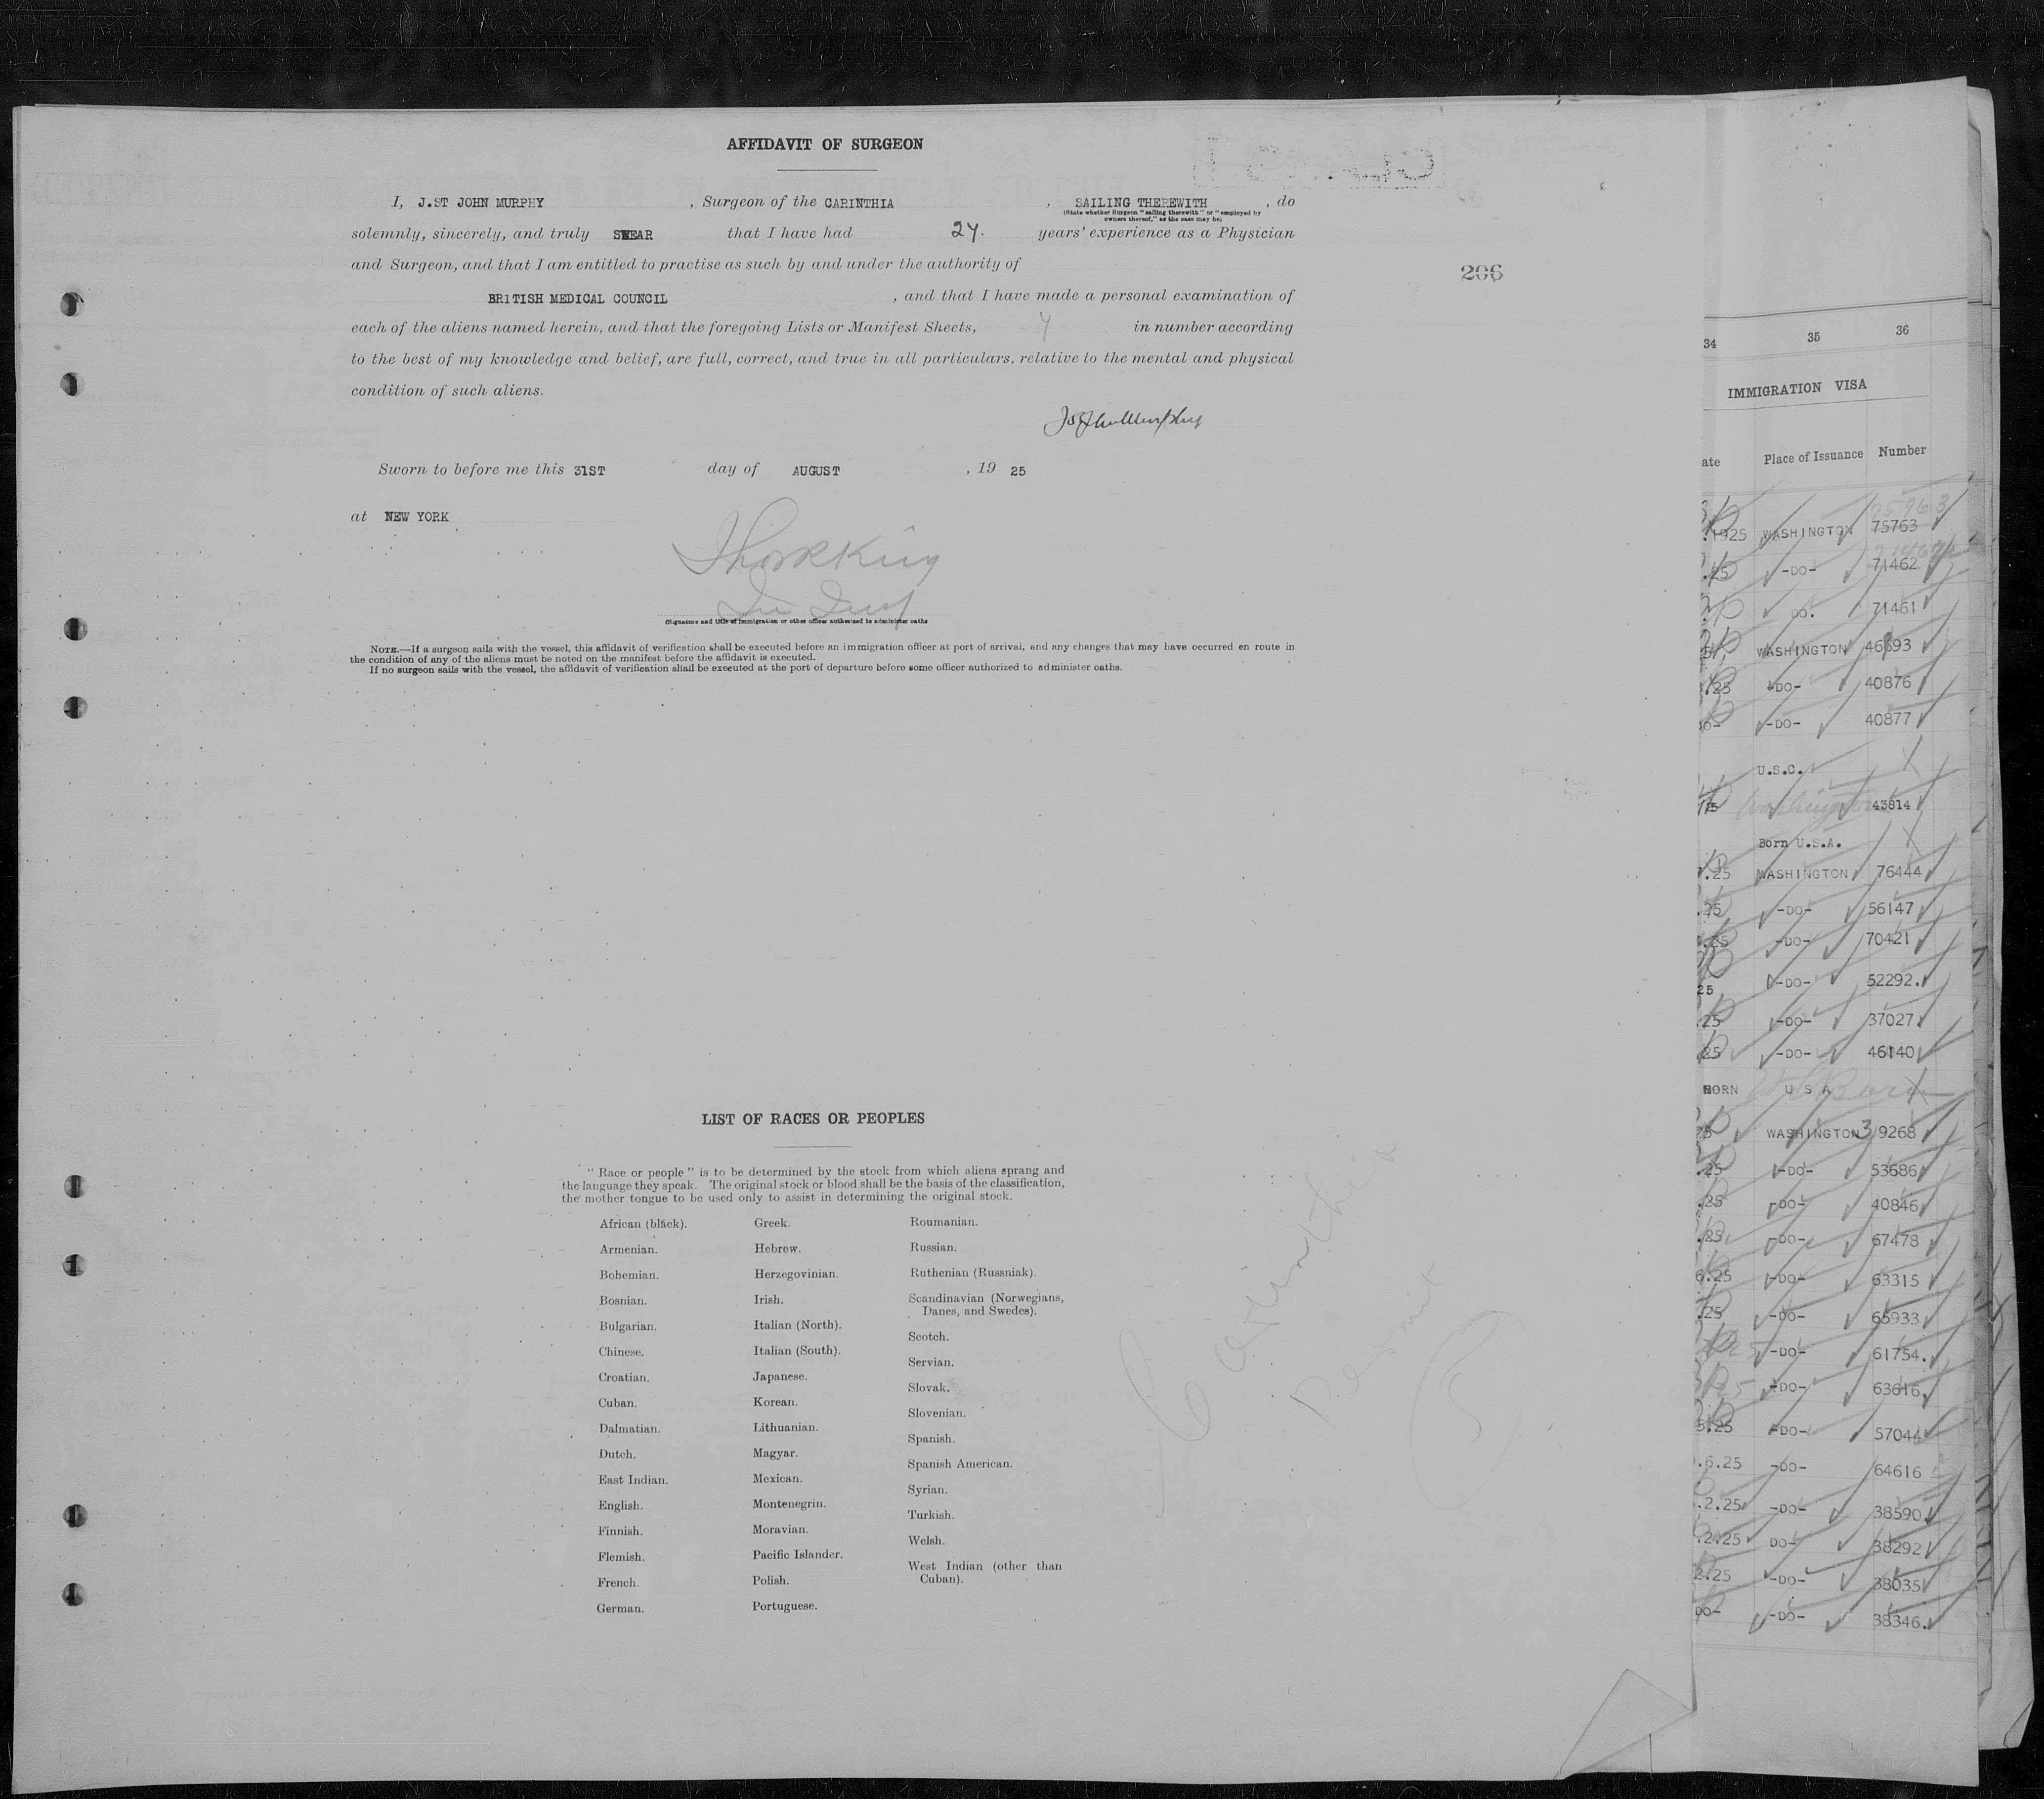 AFFIDAVIT OF SURGEON
I, J.ST JOHN MURPHY , Surgeon of the CARINTHIA , SAILING THEREWITH , do
(State whether Surgeon "sailing therewith" or "employed by
owners thereof," as the case may be)
solemnly, sincerely, and truly SWEAR that I have had 24. years' experience as a Physician
and Surgeon, and that I am entitled to practise as such by and under the authority of
206
BRITISH MEDICAL COUNCIL , and that I have made a personal examination of
each of the aliens named herein, and that the foregoing Lists or Manifest Sheets, 4 in number according
to the best of my knowledge and belief, are full, correct, and true in all particulars. relative to the mental and physical
condition of such aliens.
Sworn to before me this 31ST day of AUGUST , 19 25
at NEW YORK
(Signature and title of immigration or other officer authorized to administer oaths
NOTE.—If a surgeon sails with the vessel, this affidavit of verification shall be executed before an immigration officer at port of arrival, and any changes that may have occurred en route in
the condition of any of the aliens must be noted on the manifest before the affidavit is executed.
If no surgeon sails with the vessel, the affidavit of verification shall be executed at the port of departure before some officer authorized to administer oaths.
LIST OF RACES OR PEOPLES
"Race or people" is to be determined by the stock from which aliens sprang and
the language they speak. The original stock or blood shall be the basis of the classification,
the mother tongue to be used only to assist in determining the original stock.
African (black).
Armenian.
Bohemian.
Bosnian.
Bulgarian.
Chinese.
Croatian.
Cuban.
Dalmatian.
Dutch.
East Indian.
English.
Finnish.
Flemish.
French.
German.
Greek.
Hebrew.
Herzegovinian.
Irish.
Italian (North).
Italian (South).
Japanese.
Korean.
Lithuanian.
Magyar.
Mexican.
Montenegrin.
Moravian.
Pacific Islander.
Polish.
Portuguese.
Roumanian.
Russian.
Ruthenian (Russniak).
Scandinavian (Norwegians,
Danes, and Swedes).
Scotch.
Servian.
Slovak.
Slovenian.
Spanish.
Spanish American.
Syrian.
Turkish.
Welsh.
West Indian (other than
Cuban).
Carinthia
Permit
34 35 36
IMMIGRATION VISA
ate Place of Issuance Number
.1925 WASHINGTON 75763
.25 -DO- 71462
DO. 71461
WASHINGTON 46693
.25 -DO- 40876
DO- -DO- 40877
U.S.C.
Washington 43814
Born U.S.A.
.25 WASHINGTON 76444
.25 -DO- 56147
.25 -DO- 70421
25 -DO- 52292.
.25 -DO- 37027.
25 -DO- 46140
BORN U S A
25 WASHINGTON 39268
.25 -DO- 53686
.25 -DO- 40846
.25. -DO- 67478
6.25 -DO- 63315
.25 -DO- 65933
25 -DO- 61754.
25 -DO- 63616
5.25 -DO- 57044
.6.25 -DO- 64616
.2.25 -DO- 38590
.2.25 DO- 38292
2.25 -DO- 38035
DO- -DO- 38346.